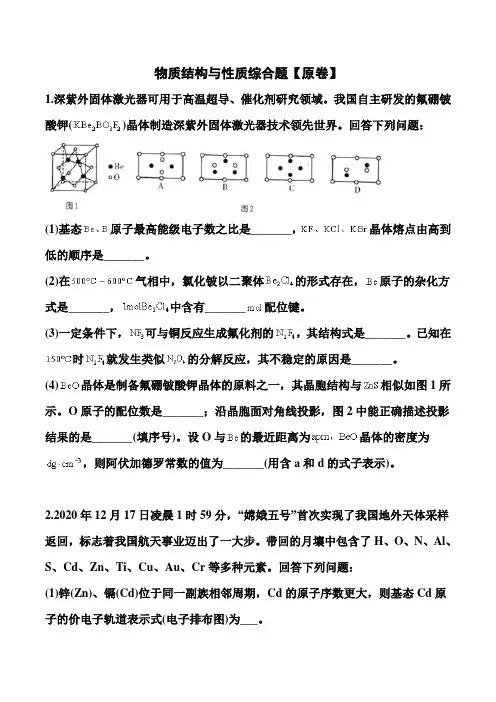 物质结构与性质综合题【原卷】
1.深紫外固体激光器可用于高温超导、催化剂研究领域。我国自主研发的氟硼铍
酸钾(KBe₂BO₃F₂)晶体制造深紫外固体激光器技术领先世界。回答下列问题：
Be
O
A
B
C
D
图1
图2
(1)基态Be、B原子最高能级电子数之比是_______，KF、KCl、KBr晶体熔点由高到
低的顺序是_______。
(2)在500℃~600℃气相中，氯化铍以二聚体Be₂Cl₄的形式存在，Be原子的杂化方
式是_______，1molBe₂Cl₄中含有_______mol配位键。
(3)一定条件下，NF₃可与铜反应生成氟化剂的N₂F₄，其结构式是_______。已知在
150℃时N₂F₄就发生类似N₂O₄的分解反应，其不稳定的原因是_______。
(4)BeO晶体是制备氟硼铍酸钾晶体的原料之一，其晶胞结构与ZnS相似如图1所
示。O原子的配位数是_______；沿晶胞面对角线投影，图2中能正确描述投影
结果的是_______(填序号)。设O与Be的最近距离为apm，BeO晶体的密度为
dg·cm⁻³，则阿伏加德罗常数的值为_______(用含a和d的式子表示)。
2.2020年12月17日凌晨1时59分，“嫦娥五号”首次实现了我国地外天体采样
返回，标志着我国航天事业迈出了一大步。带回的月壤中包含了H、O、N、Al、
S、Cd、Zn、Ti、Cu、Au、Cr等多种元素。回答下列问题：
(1)锌(Zn)、镉(Cd)位于同一副族相邻周期，Cd的原子序数更大，则基态Cd原
子的价电子轨道表示式(电子排布图)为___。